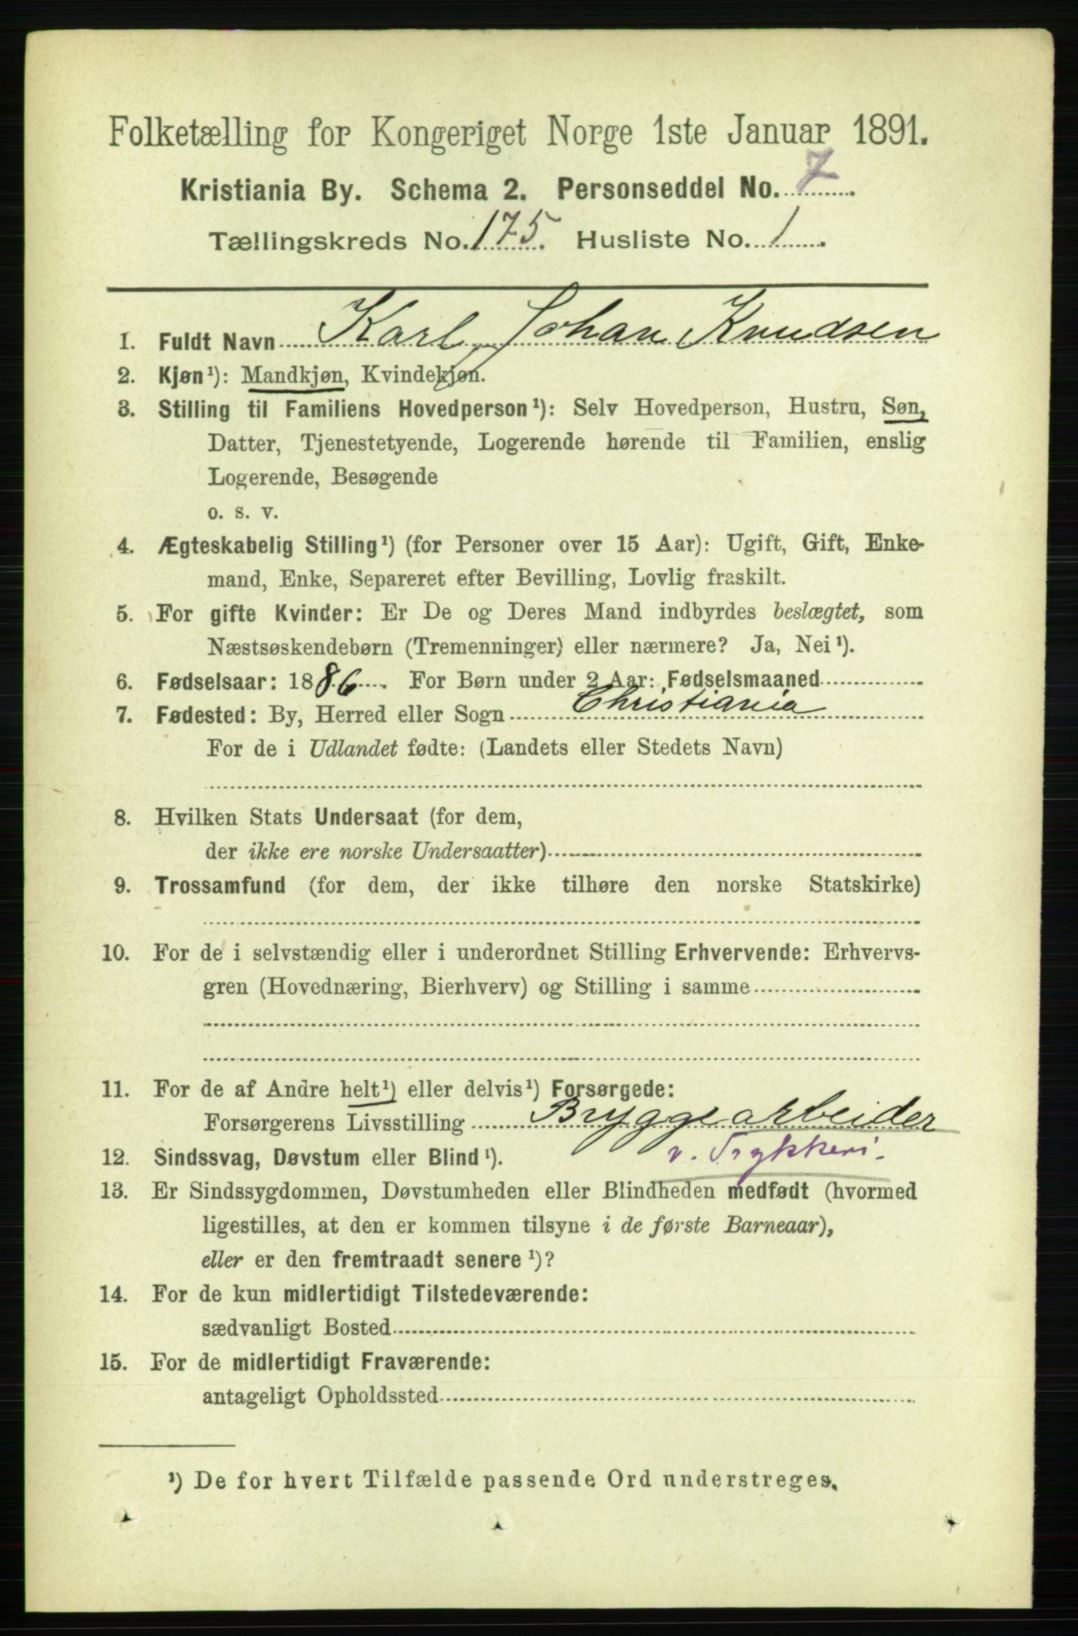 Folketælling for Kongeriget Norge 1ste Januar 1891.
Kristiania By. Schema 2. Personseddel No. 7.
Tællingskreds No. 175. Husliste No. 1.
1. Fuldt Navn Karl Johan Knudsen
2. Kjøn¹): Mandkjøn, Kvindekjøn.
3. Stilling til Familiens Hovedperson¹): Selv Hovedperson, Hustru, Søn,
Datter, Tjenestetyende, Logerende hørende til Familien, enslig
Logerende, Besøgende
o. s. v.
4. Ægteskabelig Stilling¹) (for Personer over 15 Aar): Ugift, Gift, Enke-
mand, Enke, Separeret efter Bevilling, Lovlig fraskilt.
5. For gifte Kvinder: Er De og Deres Mand indbyrdes beslægtet, som
Næstsøskendebørn (Tremenninger) eller nærmere? Ja, Nei¹).
6. Fødselsaar: 1886. For Børn under 2 Aar: Fødselsmaaned
7. Fødested: By, Herred eller Sogn Christiania
For de i Udlandet fødte: (Landets eller Stedets Navn)
8. Hvilken Stats Undersaat (for dem,
der ikke ere norske Undersaatter)
9. Trossamfund (for dem, der ikke tilhøre den norske Statskirke)
10. For de i selvstændig eller i underordnet Stilling Erhvervende: Erhvervs-
gren (Hovednæring, Bierhverv) og Stilling i samme
11. For de af Andre helt¹) eller delvis¹) Forsørgede:
Forsørgerens Livsstilling Bryggearbeider
v. Trykkeri.
12. Sindssvag, Døvstum eller Blind¹).
13. Er Sindssygdommen, Døvstumheden eller Blindheden medfødt (hvormed
ligestilles, at den er kommen tilsyne i de første Barneaar),
eller er den fremtraadt senere¹)?
14. For de kun midlertidigt Tilstedeværende:
sædvanligt Bosted
15. For de midlertidigt Fraværende:
antageligt Opholdssted
¹) De for hvert Tilfælde passende Ord understreges.